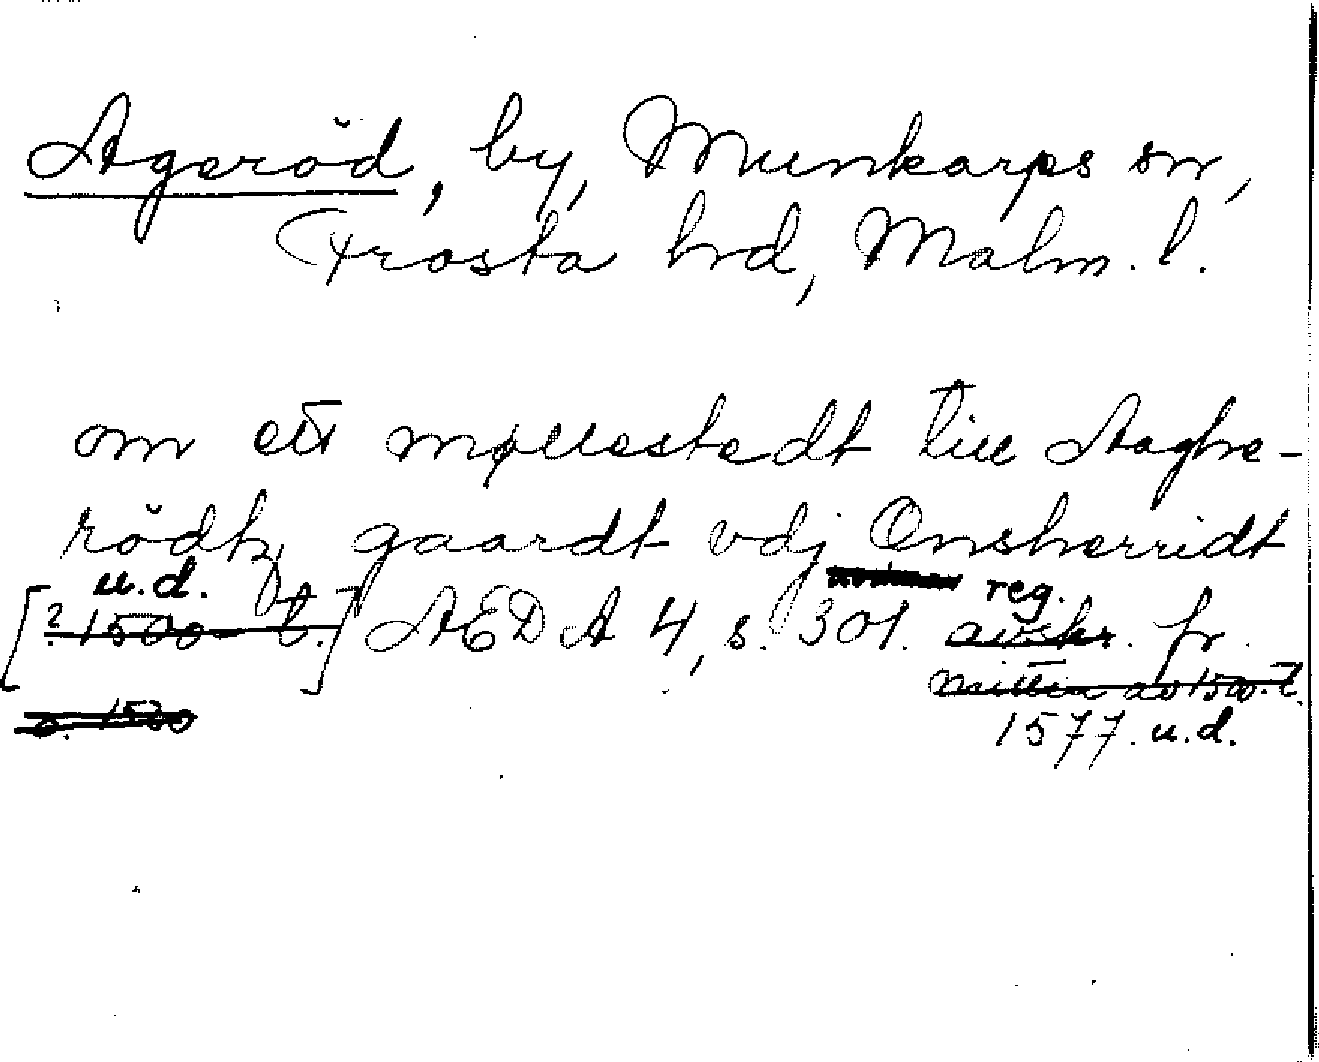 Ageröd, by, Munkarps sn,
Frosta hd, Malm. l.
om ett møllestedt till Aaghe-
rödtz gaardt vdj Onsherridt
u.d. reg.
[? 1500-t.] AEDA 4, s. 301. avskr. fr.
mitten av 1500-t.
o. 1530
1577. u.d.